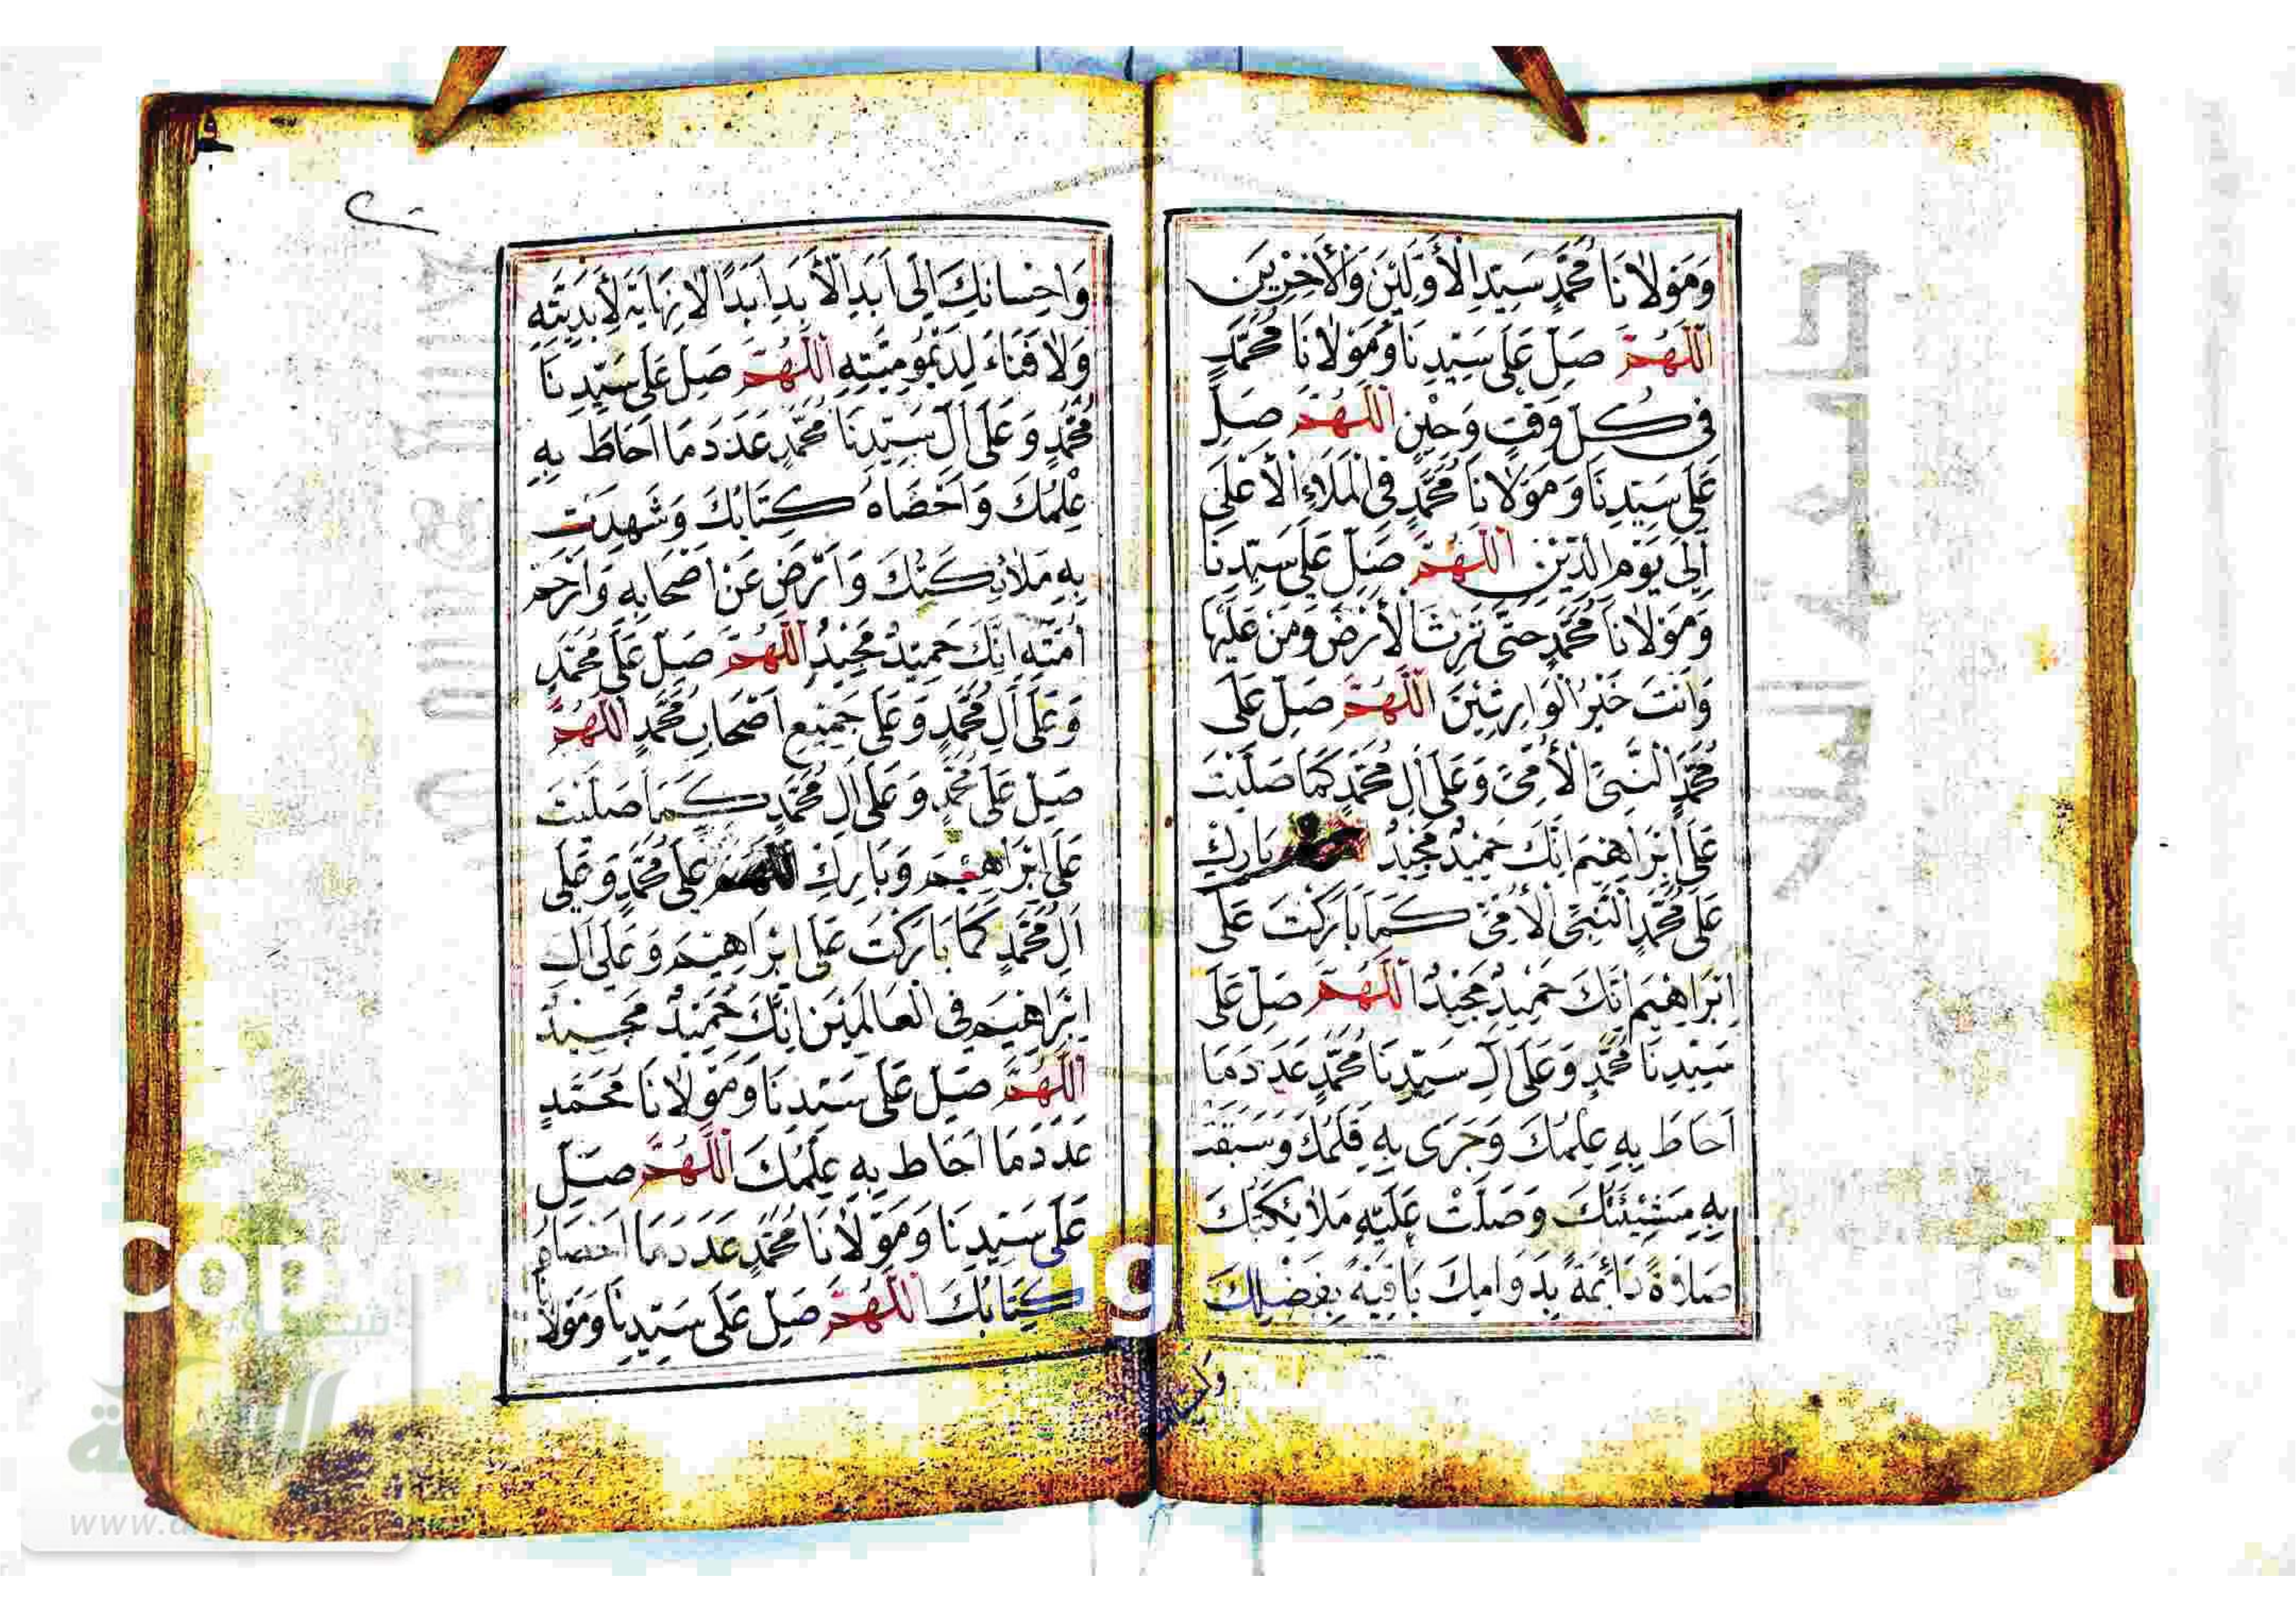 وَمَوْلَانَا مُحَمَّدٍ سَيِّدِ الْأَوَّلِيْنَ وَالْأَخِرِيْنَ
اَللّٰهُمَّ صَلِّ عَلَى سَيِّدِنَا وَمَوْلَانَا مُحَمَّدٍ
فِي كُلِّ وَقْتٍ وَحِيْنٍ اَللّٰهُمَّ صَلِّ
عَلَى سَيِّدِنَا وَمَوْلَانَا مُحَمَّدٍ فِي الْمَلَاءِ الْأَعْلَى
اِلَى يَوْمِ الدِّيْنِ اَللّٰهُمَّ صَلِّ عَلَى سَيِّدِنَا
وَمَوْلَانَا مُحَمَّدٍ حَتَّى تَرِثَ الْأَرْضَ وَمَنْ عَلَيْهَا
وَاَنْتَ خَيْرُ الْوَارِثِيْنَ اَللّٰهُمَّ صَلِّ عَلَى
مُحَمَّدٍ النَّبِيِّ الْأُمِّيِّ وَعَلَى اٰلِ مُحَمَّدٍ كَمَا صَلَّيْتَ
عَلَى اِبْرَاهِيْمَ اِنَّكَ حَمِيْدٌ مَجِيْدٌ بَارِكْ
عَلَى مُحَمَّدٍ النَّبِيِّ الْأُمِّيِّ كَمَا بَارَكْتَ عَلَى
اِبْرَاهِيْمَ اِنَّكَ حَمِيْدٌ مَجِيْدٌ اَللّٰهُمَّ صَلِّ عَلَى
سَيِّدِنَا مُحَمَّدٍ وَعَلَى اٰلِ سَيِّدِنَا مُحَمَّدٍ عَدَدَ مَا
اَحَاطَ بِهِ عِلْمُكَ وَجَرَى بِهِ قَلَمُكَ وَسَبَقَتْ
بِهِ مَشِيْئَتُكَ وَصَلَّتْ عَلَيْهِ مَلَائِكَتُكَ
صَلَاةً دَائِمَةً بِدَوَامِكَ بَاقِيَةً بِفَضْلِكَ
وَاِحْسَانِكَ اِلَى اَبَدِ الْأَبَدِ اَبَدًا لَا نِهَايَةَ لِأَبَدِيَّتِهِ
وَلَا فَنَاءَ لِدَيْمُوْمِيَّتِهِ اَللّٰهُمَّ صَلِّ عَلَى سَيِّدِنَا
مُحَمَّدٍ وَعَلَى اٰلِ سَيِّدِنَا مُحَمَّدٍ عَدَدَ مَا اَحَاطَ بِهِ
عِلْمُكَ وَاَحْصَاهُ كِتَابُكَ وَشَهِدَتْ
بِهِ مَلَائِكَتُكَ وَارْضَ عَنْ اَصْحَابِهِ وَارْحَمْ
اُمَّتَهُ اِنَّكَ حَمِيْدٌ مَجِيْدٌ اَللّٰهُمَّ صَلِّ عَلَى مُحَمَّدٍ
وَعَلَى اٰلِ مُحَمَّدٍ وَعَلَى جَمِيْعِ اَصْحَابِ مُحَمَّدٍ اَللّٰهُمَّ
صَلِّ عَلَى مُحَمَّدٍ وَعَلَى اٰلِ مُحَمَّدٍ كَمَا صَلَّيْتَ
عَلَى اِبْرَاهِيْمَ وَبَارِكْ اللّٰهُمَّ عَلَى مُحَمَّدٍ وَعَلَى
اٰلِ مُحَمَّدٍ كَمَا بَارَكْتَ عَلَى اِبْرَاهِيْمَ وَعَلَى اٰلِ
اِبْرَاهِيْمَ فِي الْعَالَمِيْنَ اِنَّكَ حَمِيْدٌ مَجِيْدٌ
اَللّٰهُمَّ صَلِّ عَلَى سَيِّدِنَا وَمَوْلَانَا مُحَمَّدٍ
عَدَدَ مَا اَحَاطَ بِهِ عِلْمُكَ اَللّٰهُمَّ صَلِّ
عَلَى سَيِّدِنَا وَمَوْلَانَا مُحَمَّدٍ عَدَدَ مَا اَحْصَاهُ
كِتَابُكَ اَللّٰهُمَّ صَلِّ عَلَى سَيِّدِنَا وَمَوْلَانَا